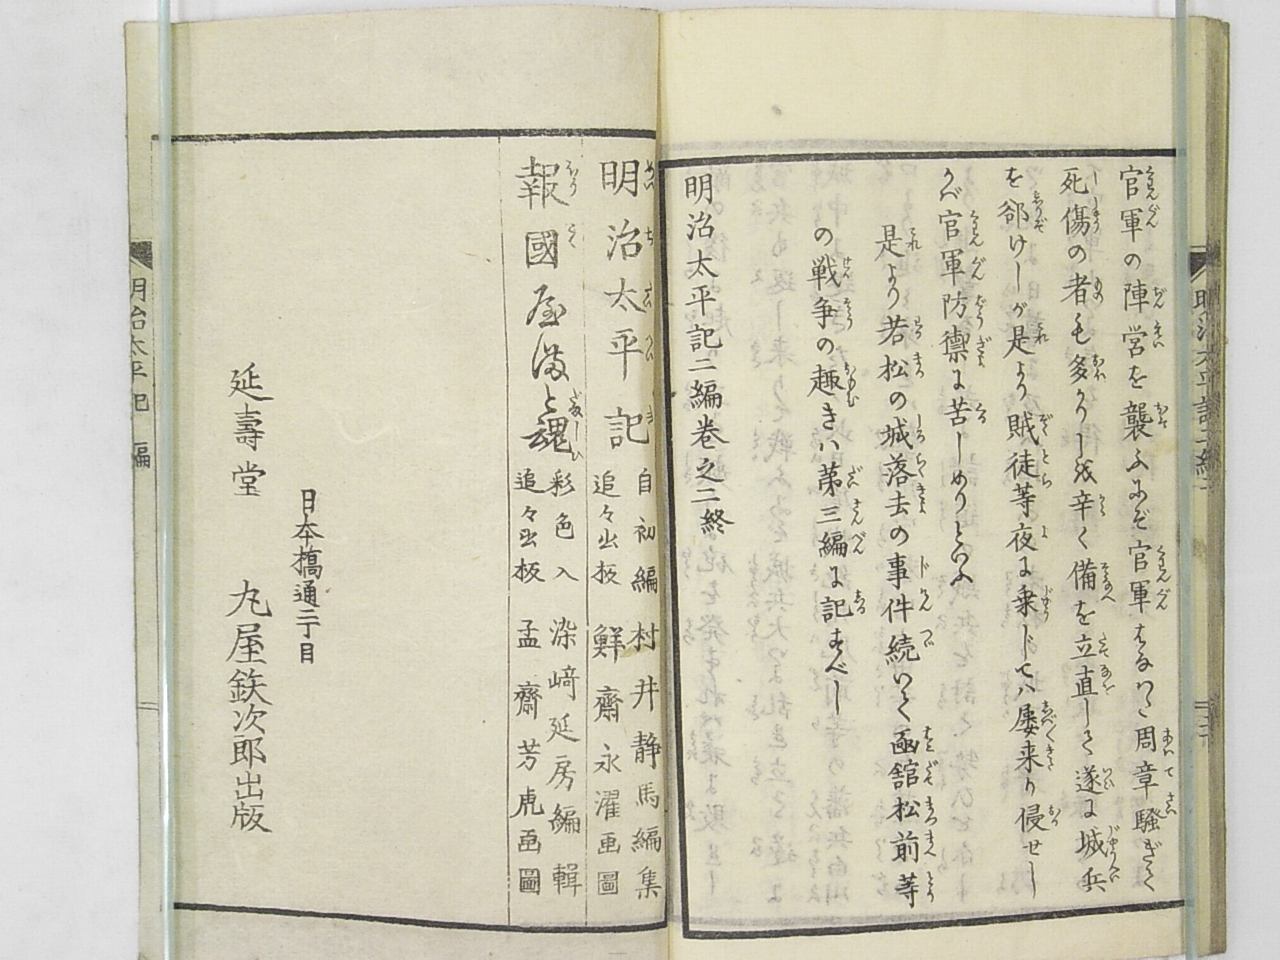 官軍の陣営を襲ふにぞ官軍はなはだ周章騒ぎて
死傷の者も多かりしが辛く備を立直して遂に城兵
を郤けしが是より賊徒等夜に乗じては屡来り侵せし
かバ官軍防禦に苦しめりといふ
是より若松の城落去の事件続いて函舘松前等
の戦争の趣きハ第三編に記すべし
明治太平記二編巻之二終
明治太平記 自初編 村井静馬編集
追々出板 鮮齋永濯画圖
報國屋満と魂 彩色入 染﨑延房編輯
追々出板 孟齋芳虎画圖
日本橋通三丁目
延壽堂 丸屋鉄次郎出版
明治太平記 編
明治太平記二編